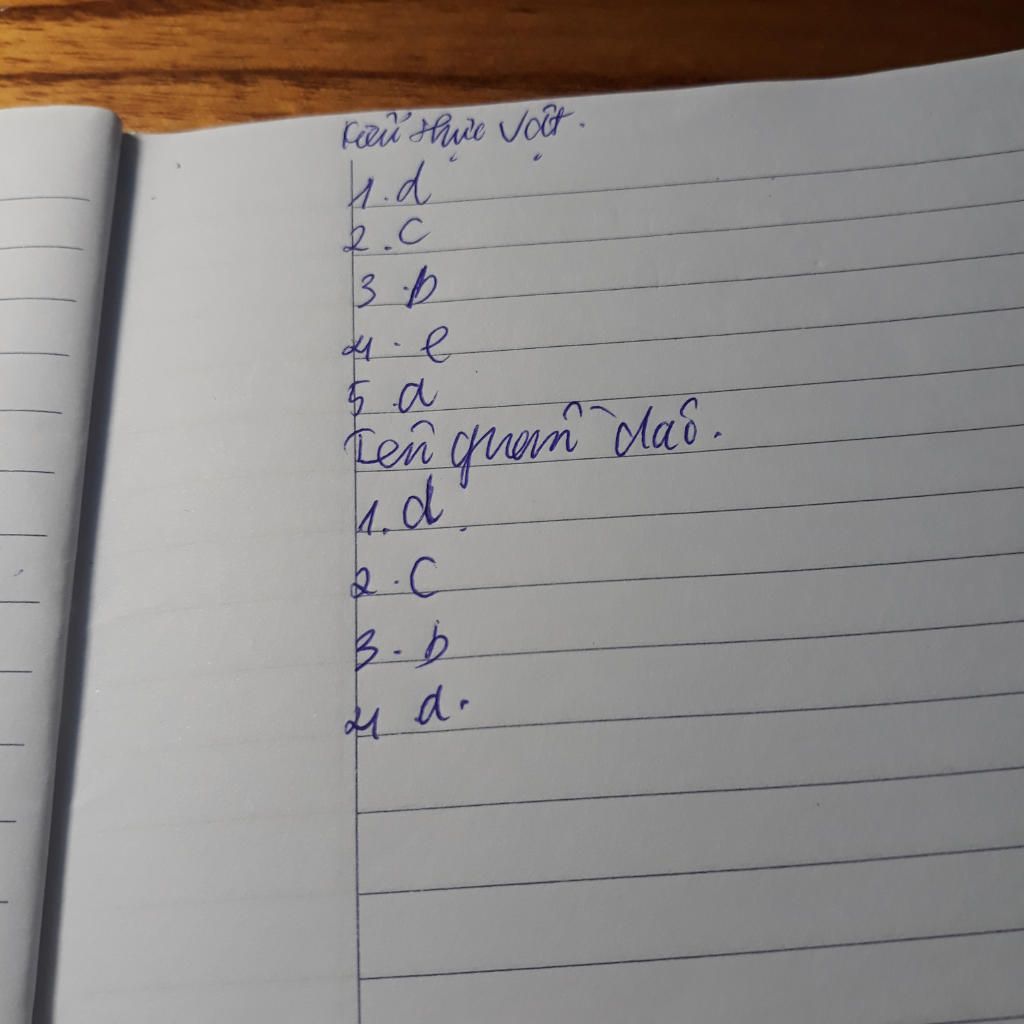 Kiểu thực vật.
1. d
2. c
3. b
4. e
5 a
Tên quần đảo.
1. d
2. c
3. b
4 d.